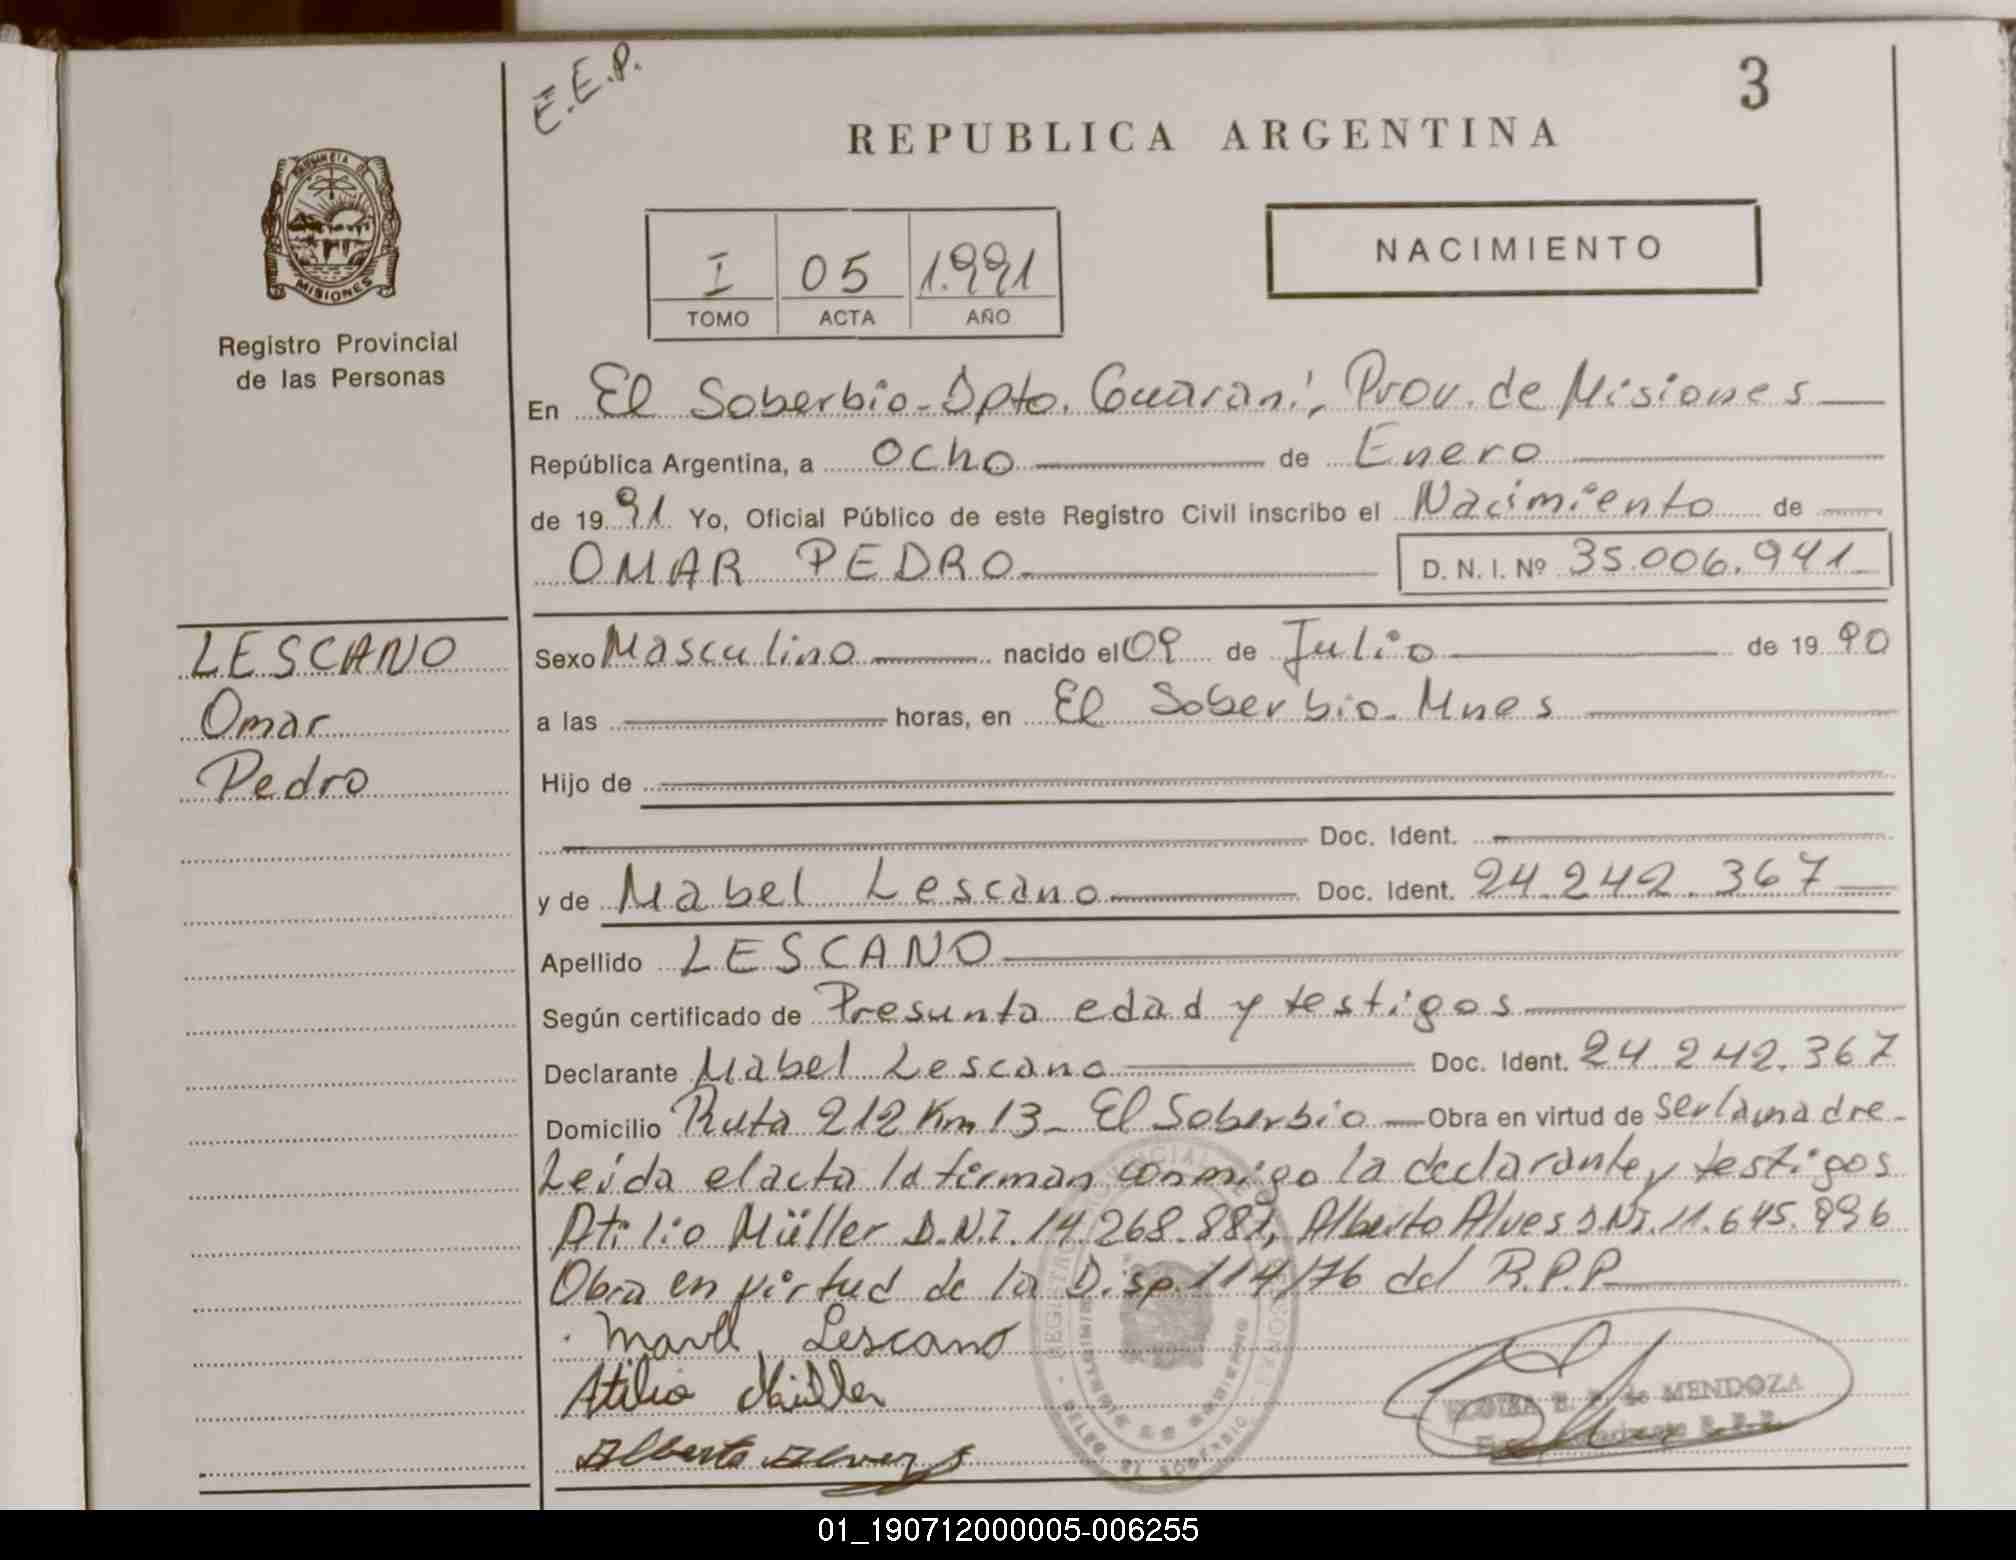 E.E.P.
3
REPUBLICA ARGENTINA
MISIONES
Registro Provincial
de las Personas
I 05 1.991
TOMO ACTA AÑO
NACIMIENTO
En El Soberbio - Dpto. Guaraní, Prov. de Misiones
República Argentina, a Ocho de Enero
de 1991 Yo, Oficial Público de este Registro Civil inscribo el Nacimiento de
OMAR PEDRO D. N. I. Nº 35.006.941
LESCANO
Omar
Pedro
Sexo Masculino nacido el 09 de Julio de 1990
a las horas, en El Soberbio - Mnes
Hijo de
Doc. Ident.
y de Mabel Lescano Doc. Ident. 24.242.367
Apellido LESCANO
Según certificado de Presunta edad y testigos
Declarante Mabel Lescano Doc. Ident. 24.242.367
Domicilio Ruta 212 Km 13 - El Soberbio - Obra en virtud de ser la madre -
Leída el acta la firman conmigo la declarante y testigos
Atilio Müller D.N.I. 14.268.887, Alberto Alves D.N.I. 11.645.996
Obra en virtud de la Disp. 114/76 del R.P.P
Mavel Lescano
Atilio Müller
Alberto Alvez
de MENDOZA
01_190712000005-006255